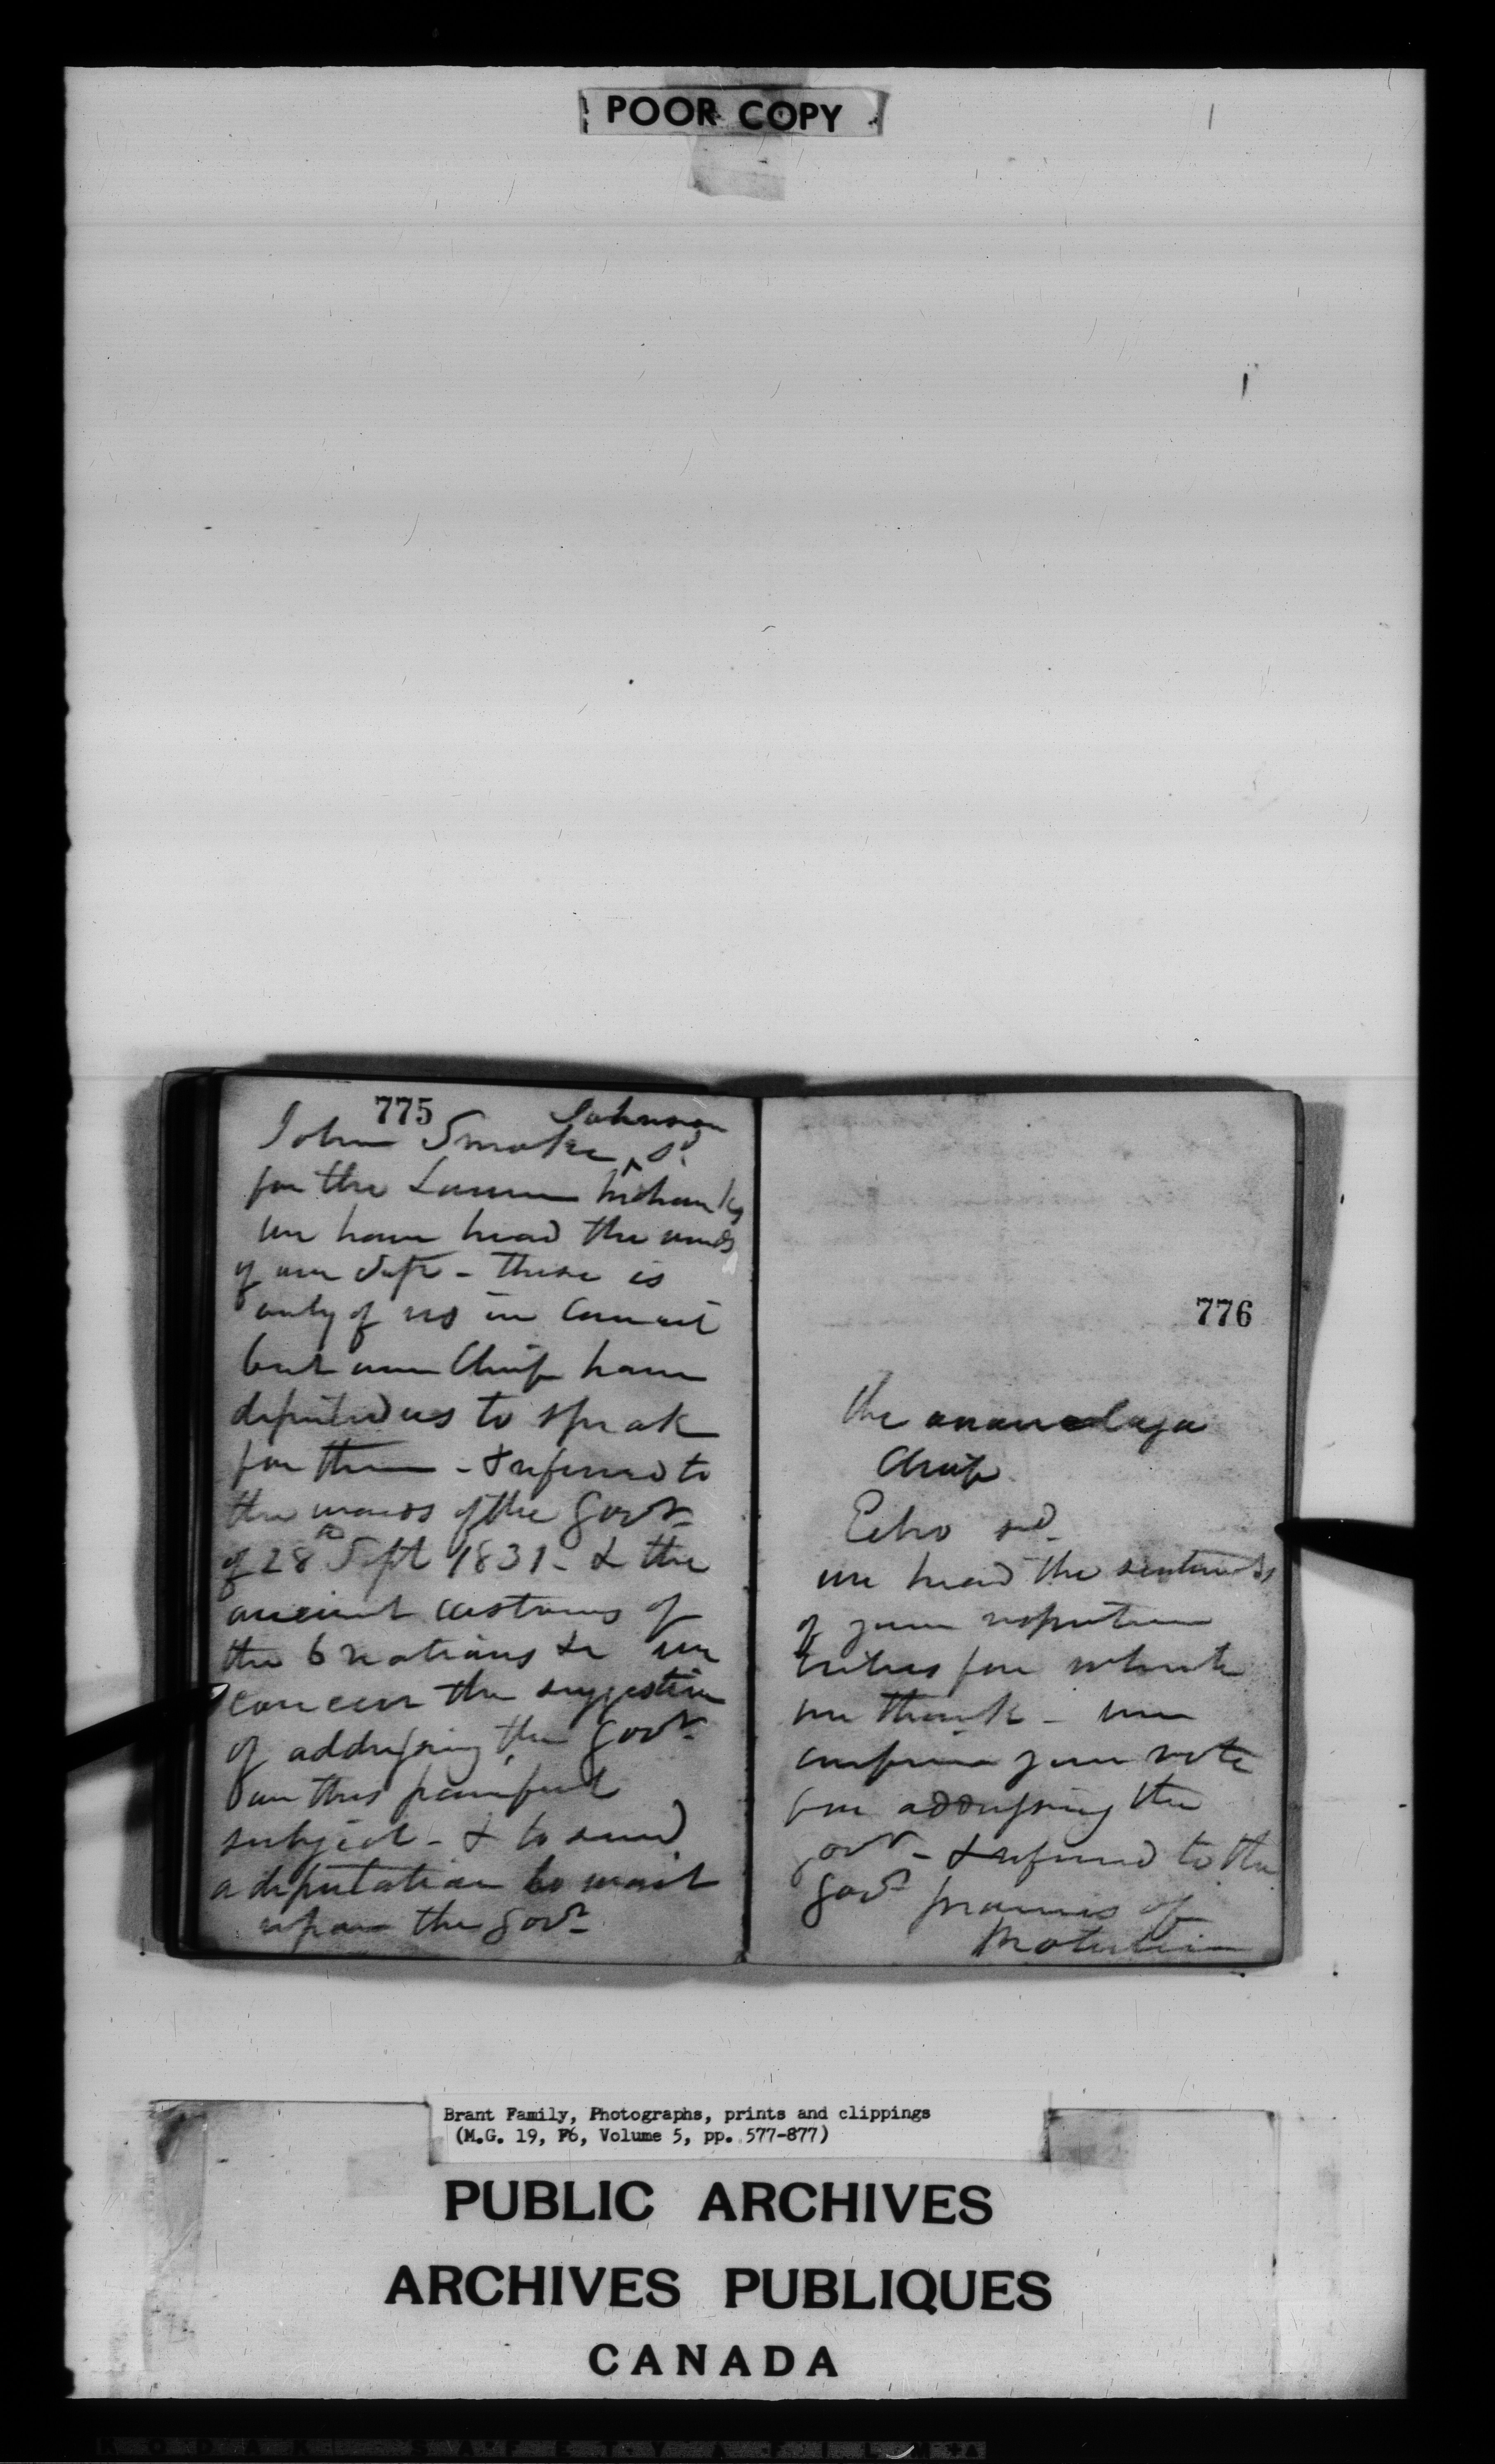 POOR COPY
775
Johnson
John Smoke ^ sd
for the Lower Mohawks
we have head the words
of our - there is
only of us in Council
but our Chiefs have
deputed us to speak
for them - & referred to
the words of the Govr
of 28th Sept 1831 - & the
ancient customs of
the 6 nations & we
concur the suggestion
of addressing the Govr
on this painful
subject - & to send
a deputation to wait
upon the Govr
776
the
Chiefs
Echo sd
we head the sentiments
of your respective
tribes for which
we thank - we
confirm your vote
for addressing the
Govr - & referred to the
Govr promises of
Protection
Brant Family, Photographs, prints and clippings
(M.G. 19, F6, Volume 5, pp. 577-877)
PUBLIC ARCHIVES
ARCHIVES PUBLIQUES
CANADA